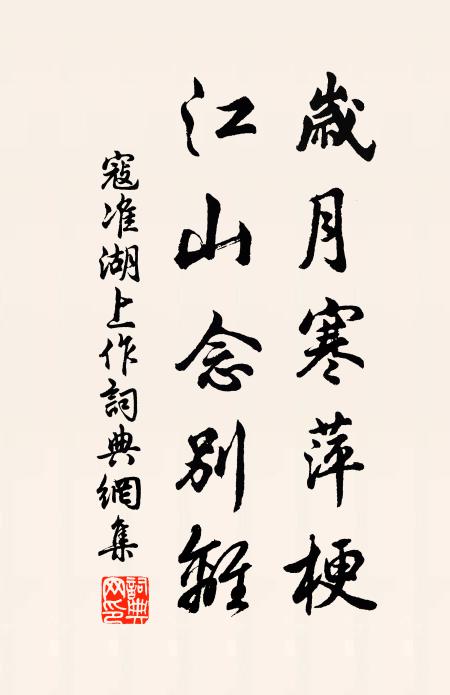 歲月寒萍梗
江山念別離
寇准湖上作詞典網集
詞典
网印